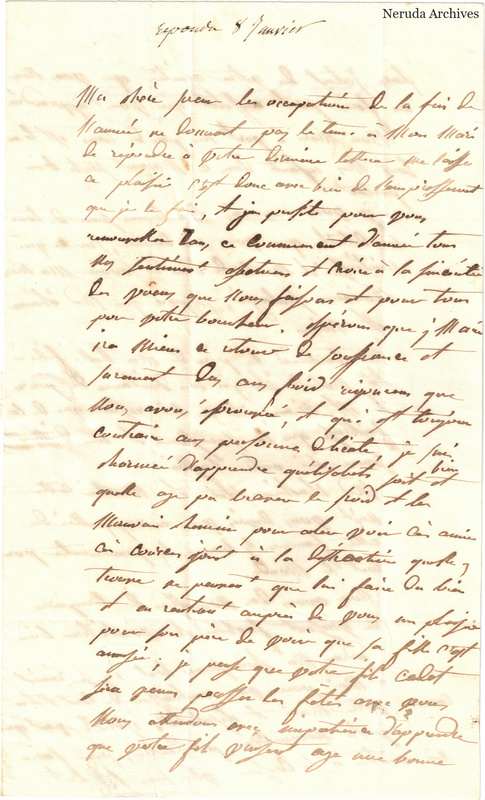 Neruda Archives
reponda 8 Janvier
Ma chère soeur les occupations de la fin de
l'année ne donnant pas le tems à Mon Mari
de répondre à votre dernière lettre me laisse
ce plaisir c'est donc avec bien de l'empressement
que je le fais, et j'en profite pour vous
renouveller dans ce commencement d'année tous
nos sentiments et croire à la sincérité
des voeux que nous faisons et pour tous
pour votre bonheur. espérons que Marie
ira mieux ce retour de souffrance est
surement des aux froid rigoureux que
nous avons éprouvé, et qui est toujours
contraire aux personnes délicate, je suis
charmée d'apprendre qu'elisabeth soit bien et
quelle aye pu braver le froid et les
Mauvais chemin pour aler voir ces amies
ces courses joint à la distraction quelle y
trouve ne peuvent que lui faire du bien
et en rentrant auprès de vous un plaisir
pour son père de voir que sa fille c'est
amusée; je pense que votre fils cadet
sera venu passer les fêtes avec vous
Nous attendons avec impatience d'apprendre
que votre fils aye une bonne